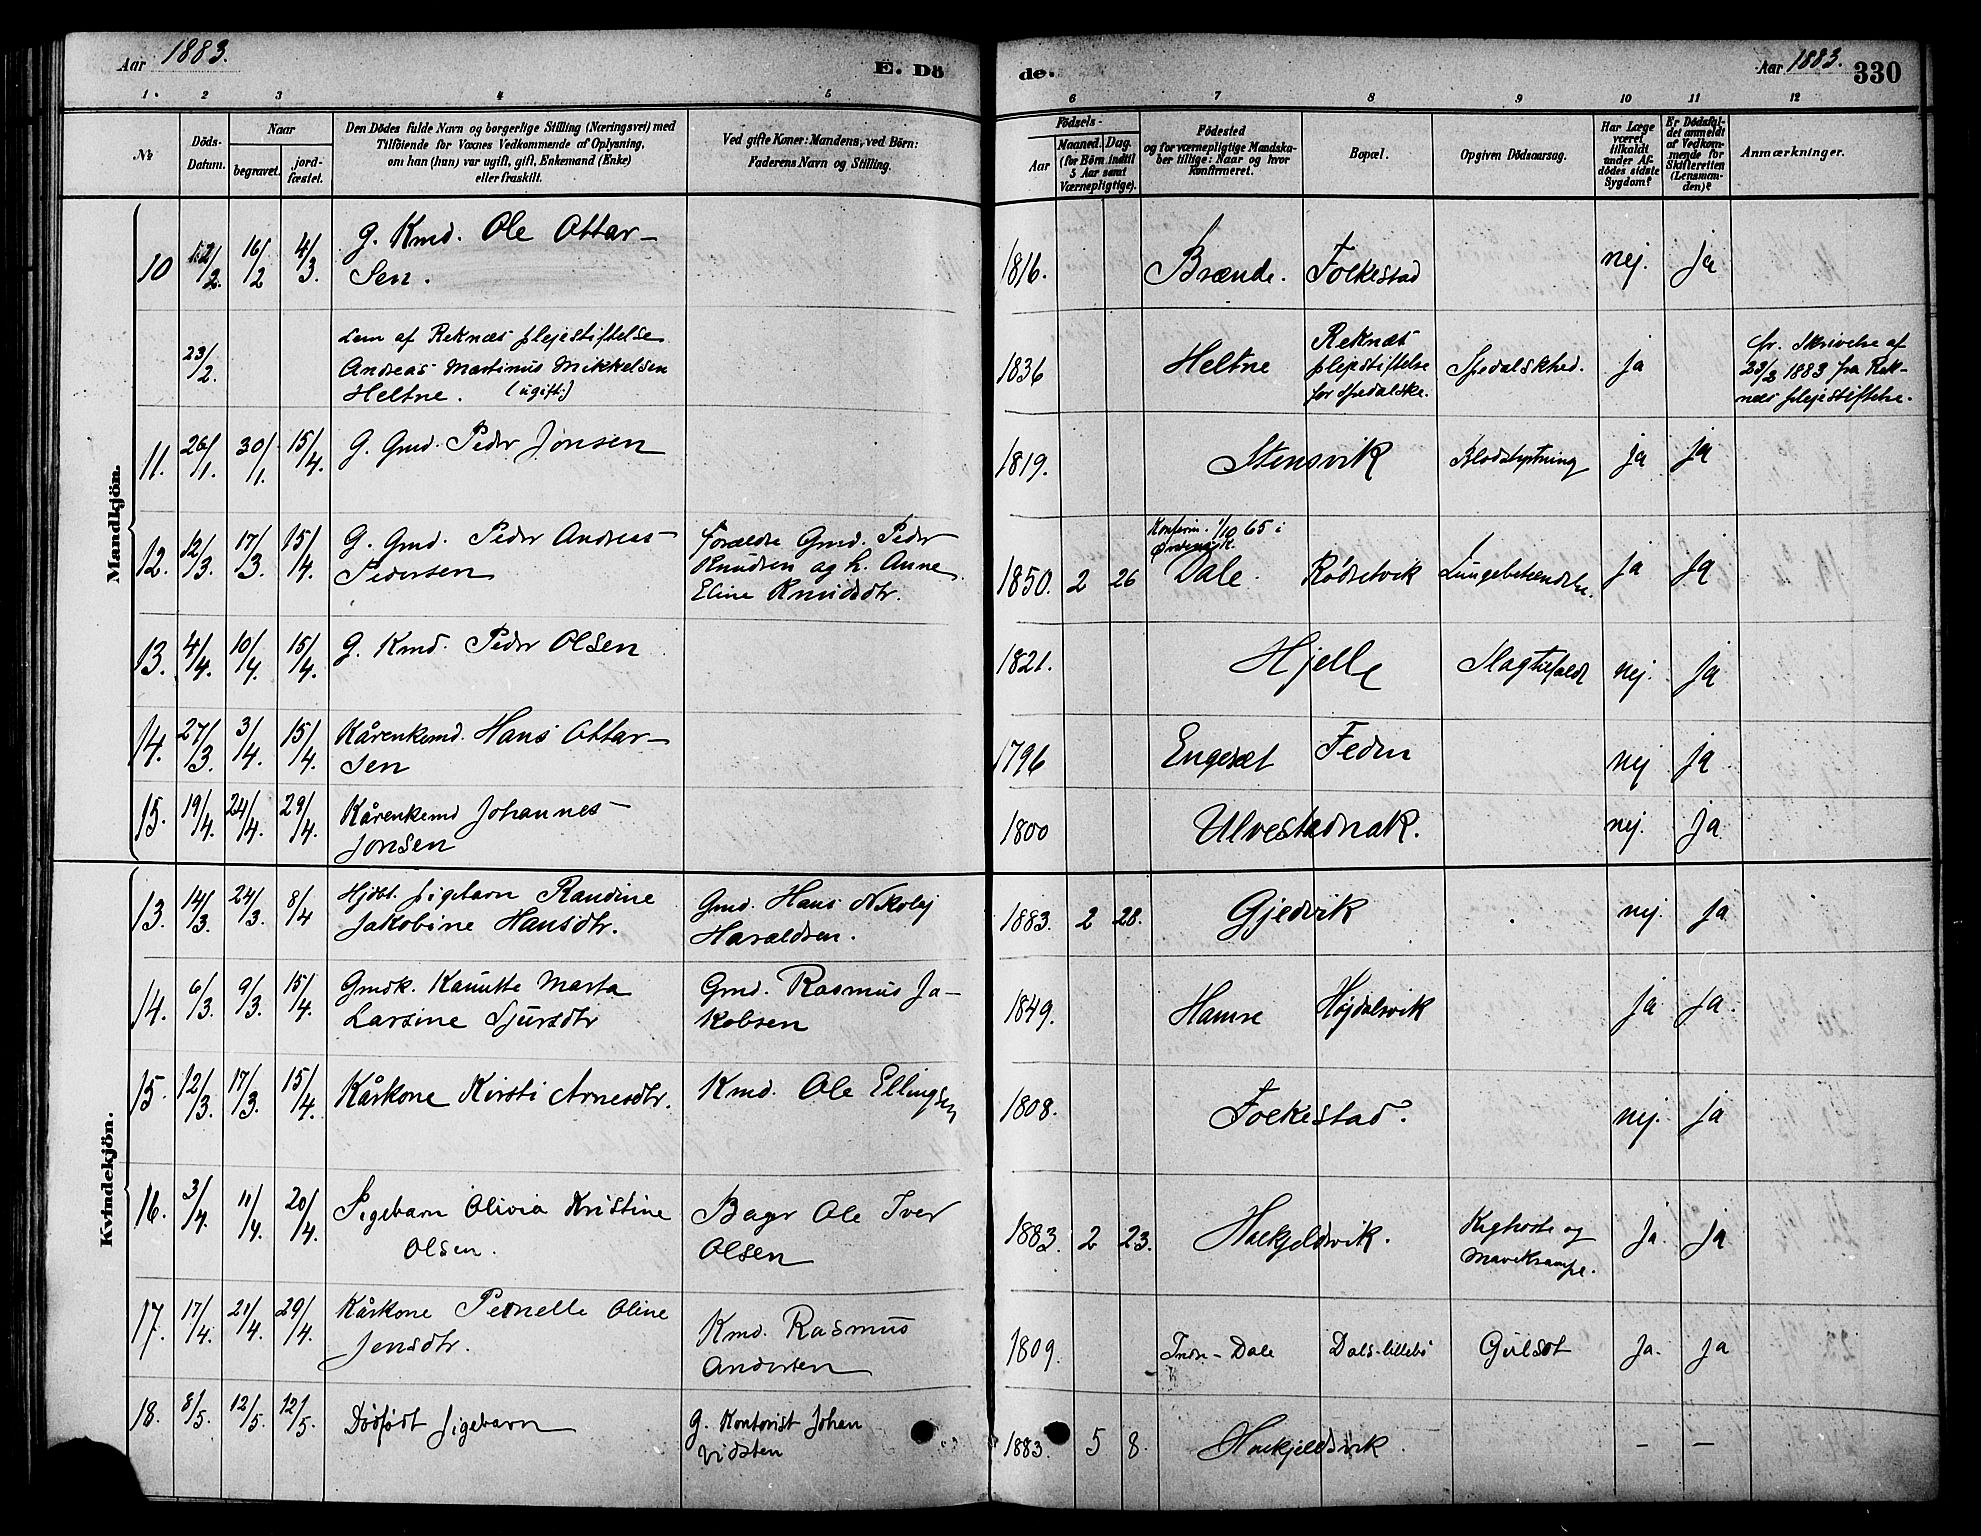 Aar 1883.
E. Dö
de.
Aar 1883.
330
1. 2 3 4 5 6 7 8 9 10 11 12
No
Döds-
Datum.
Naar
begravet.
jord-
fæstet.
Den Dödes fulde Navn og borgerlige Stilling (Næringsvei) med
Tilföiende for Voxnes Vedkommende af Oplysning,
om han (hun) var ugift, gift, Enkemand (Enke)
eller fraskilt.
Ved gifte Koner: Mandens, ved Börn:
Faderens Navn og Stilling.
Födsels-
Aar
Maaned. Dag.
(for Börn indtil
5 Aar samt
Værnepligtige).
Födested
og for værnepligtige Mandska-
ber tillige: Naar og hvor
konfirmeret.
Bopæl.
Opgiven Dödsaarsag.
Har Læge
været
tilkaldt
under Af-
dödes sidste
Sygdom?
Er Dödsfal-
det anmeldt
af Vedkom-
mende for
Skifteretten
(Lensman-
den)?
Anmærkninger.
Mandkjön.
10 12/2. 16/2 4/3. G. Kmd. Ole Ottar-
sen.
1816. Brænde. Folkestad nej. ja
23/2. Lem af Reknæs plejestiftelse
Andreas Martinus Mikkelsen
Heltne. (ugift)
1836 Heltne Reknæs
plejestiftelse
for spedalske.
Spedalskhed. ja
cfr. Skrivelse af
23/2 1883 fra Rek-
næs plejestiftelse.
11. 26/1. 30/1. 15/4. G. Gmd. Peder Jonsen
1819. Stensvik Blodstyrtning ja ja
12. 12/3. 17/3. 15/4. G. Gmd. Peder Andreas
Pedersen
forældre Gmd. Peder
Knudsen og h. Anne
Eline Knudsdtr.
1850. 2 26 Konfirm. 1/10 65 i
Dale. Rødsetvik Lungebetændelse. ja ja
13. 4/4. 10/4. 15/4. G. Kmd. Peder Olsen
1821. Hjelle Slagtilfælde nej. ja
14. 27/3. 3/4. 15/4. Kårenkemd. Hans Ottar-
sen
1796 Engeset nej ja
15. 19/4. 24/4. 29/4. Kårenkemd Johannes
Jonsen
1800 Ulvestadnak. nej. ja
Kvindekjön.
13. 14/3. 24/3. 8/4 Hjdbt. pigebarn Randine
Jakobine Hansdtr.
Gmd. Hans Nikolaj
Haraldsen.
1883. 2 28. Gjedvik nej. ja
14. 6/3. 9/3. 15/4. Gmdk. Kanutte Marta
Larsine Sjursdtr
Gmd. Rasmus Ja-
kobsen
1849. Hamre Højdalsvik ja ja.
15. 12/3. 17/3. 15/4. Kårkone Kirsti Arnesdtr.
Kmd. Ole Ellingsen
1808. Folkestad. nej. ja
16. 3/4. 11/4. 20/4. Pigebarn Olivia Kristine
Olsen.
Bager Ole Iver
Olsen
1883. 2 23. Hækjeldsvik. Kighoste og
mavekrampe. ja. ja
17. 17/4. 21/4. 29/4. Kårkone Pernelle Oline
Jensdtr.
Kmd. Rasmus
Andersen
1809. Indre-Dale Dals-lillebø Gulsot ja. ja
18. 8/5. 12/5. 12/5. Dødfødt pigebarn
g. Kontorist Johan
Vidsten
1883. 5 8. Hækjeldsvik. - -